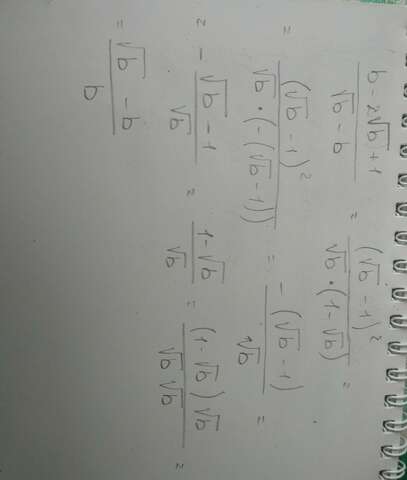 (b - 2√b + 1)/(√b - b) = (√b - 1)²/(√b · (1 - √b)) =
= (√b - 1)²/(√b · (-(√b - 1))) = -(√b - 1)/√b =
= - (√b - 1)/√b = (1 - √b)/√b = (1 - √b)√b/(√b √b) =
= (√b - b)/b